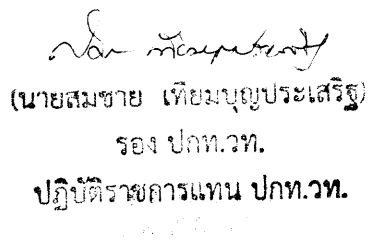 (นายสมชาย เทียมบุญประเสริฐ)
รอง ปกท.วท.
ปฏิบัติราชการแทน ปกท.วท.